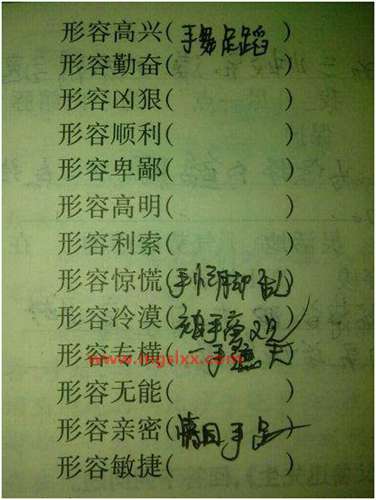 形容高兴(手舞足蹈)
形容勤奋( )
形容凶狠( )
形容顺利( )
形容卑鄙( )
形容高明( )
形容利索( )
形容惊慌(手忙脚乱)
形容冷漠(
形容专横(手遮天
形容无能( )
形容亲密(情同手足)
形容敏捷( )